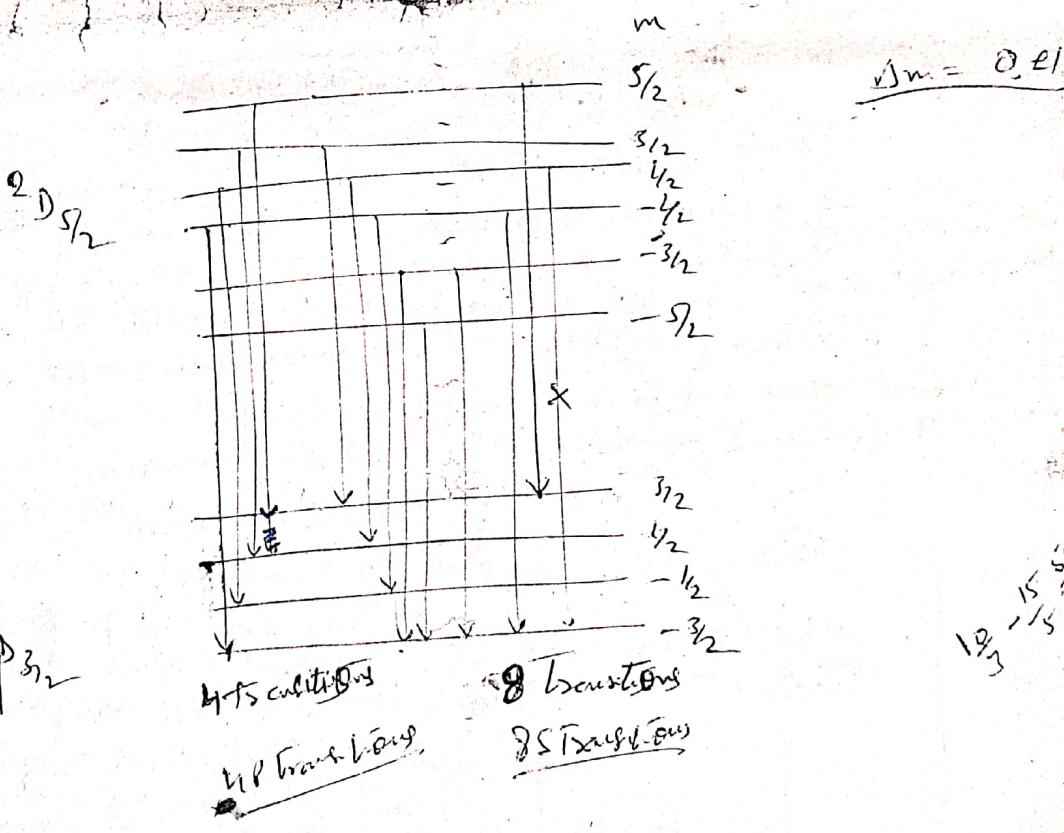 m
Δm = 0, ±1
5/2
3/2
1/2
-1/2
-3/2
-5/2
2D5/2
x
3/2
1/2
-1/2
-3/2
D3/2
4 Transitions
8 Transitions
4P Transitions
8S Transitions